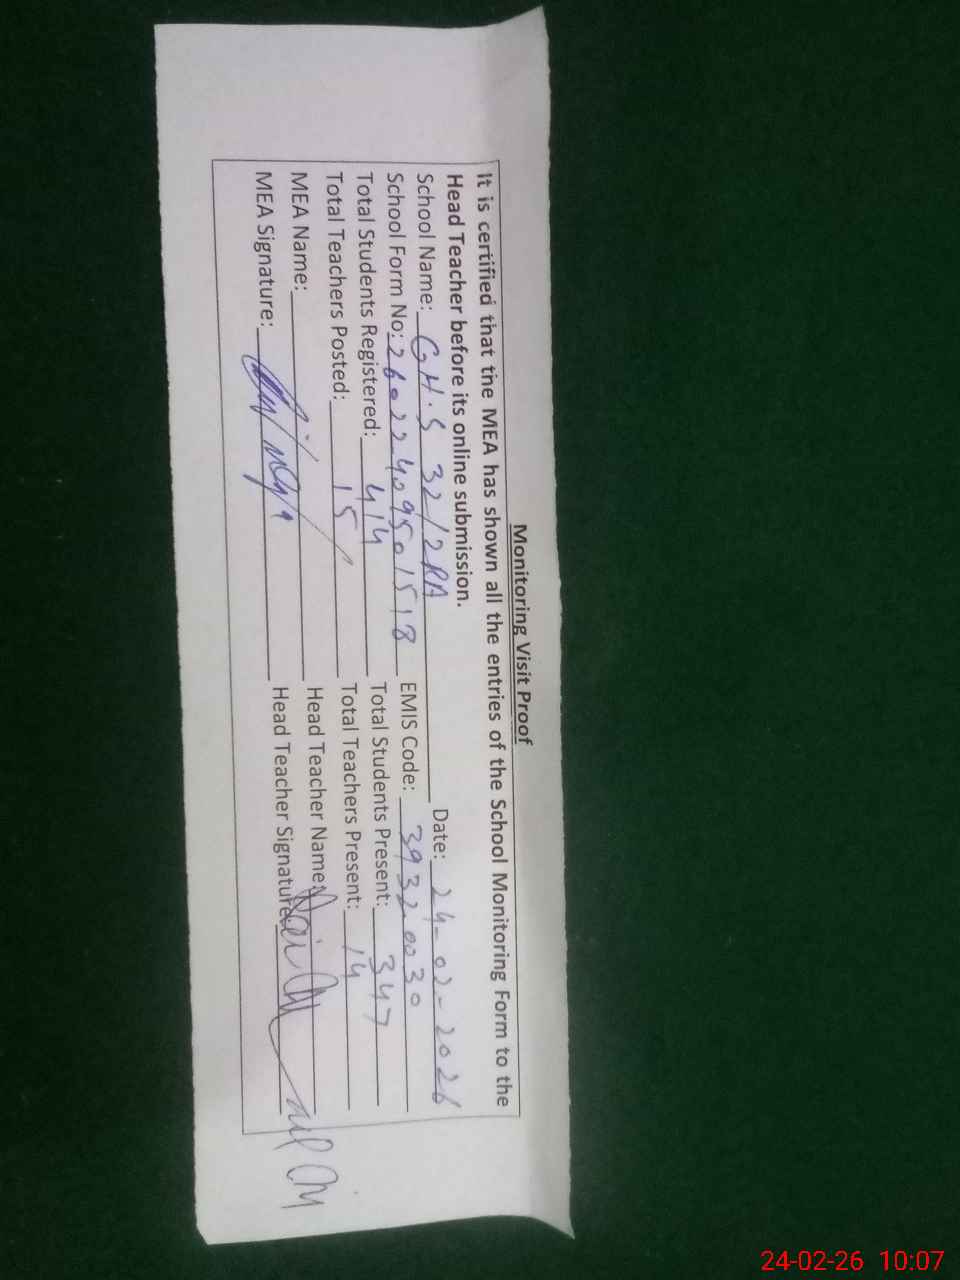 Monitoring Visit Proof
It is certified that the MEA has shown all the entries of the School Monitoring Form to the
Head Teacher before its online submission.
School Name: G.H.S 32/2RA Date: 24-02-2026
School Form No: 26022409501518 EMIS Code: 39320030
Total Students Registered: 414 Total Students Present: 347
Total Teachers Posted: 15 Total Teachers Present: 14
MEA Name: Head Teacher Name:
MEA Signature: Head Teacher Signature:
24-02-26 10:07